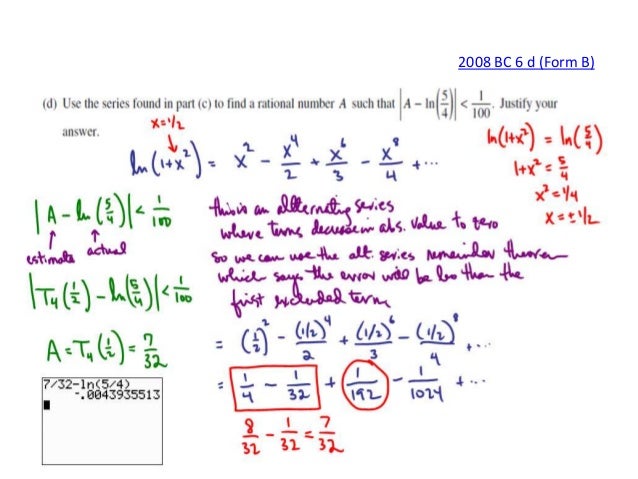 2008 BC 6 d (Form B)
(d) Use the series found in part (c) to find a rational number A such that |A − ln(5/4)| < 1/100. Justify your
answer.
x=1/2
ln(1+x²) = x² − x⁴/2 + x⁶/3 − x⁸/4 + ...
ln(1+x²) = ln(5/4)
1+x² = 5/4
x² = 1/4
x = ±1/2
|A − ln(5/4)| < 1/100
estimate actual
|T₄(1/2) − ln(5/4)| < 1/100
A = T₄(1/2) = 7/32
this is an alternating series
where terms decrease in abs. value to zero
so we can use the alt. series remainder theorem
which says the error will be less than the
first excluded term
= (1/2)² − (1/2)⁴/2 + (1/2)⁶/3 − (1/2)⁸/4 + ...
= 1/4 − 1/32 + 1/192 − 1/1024 + ...
8/32 − 1/32 = 7/32
7/32-ln(5/4)
-.0043935513